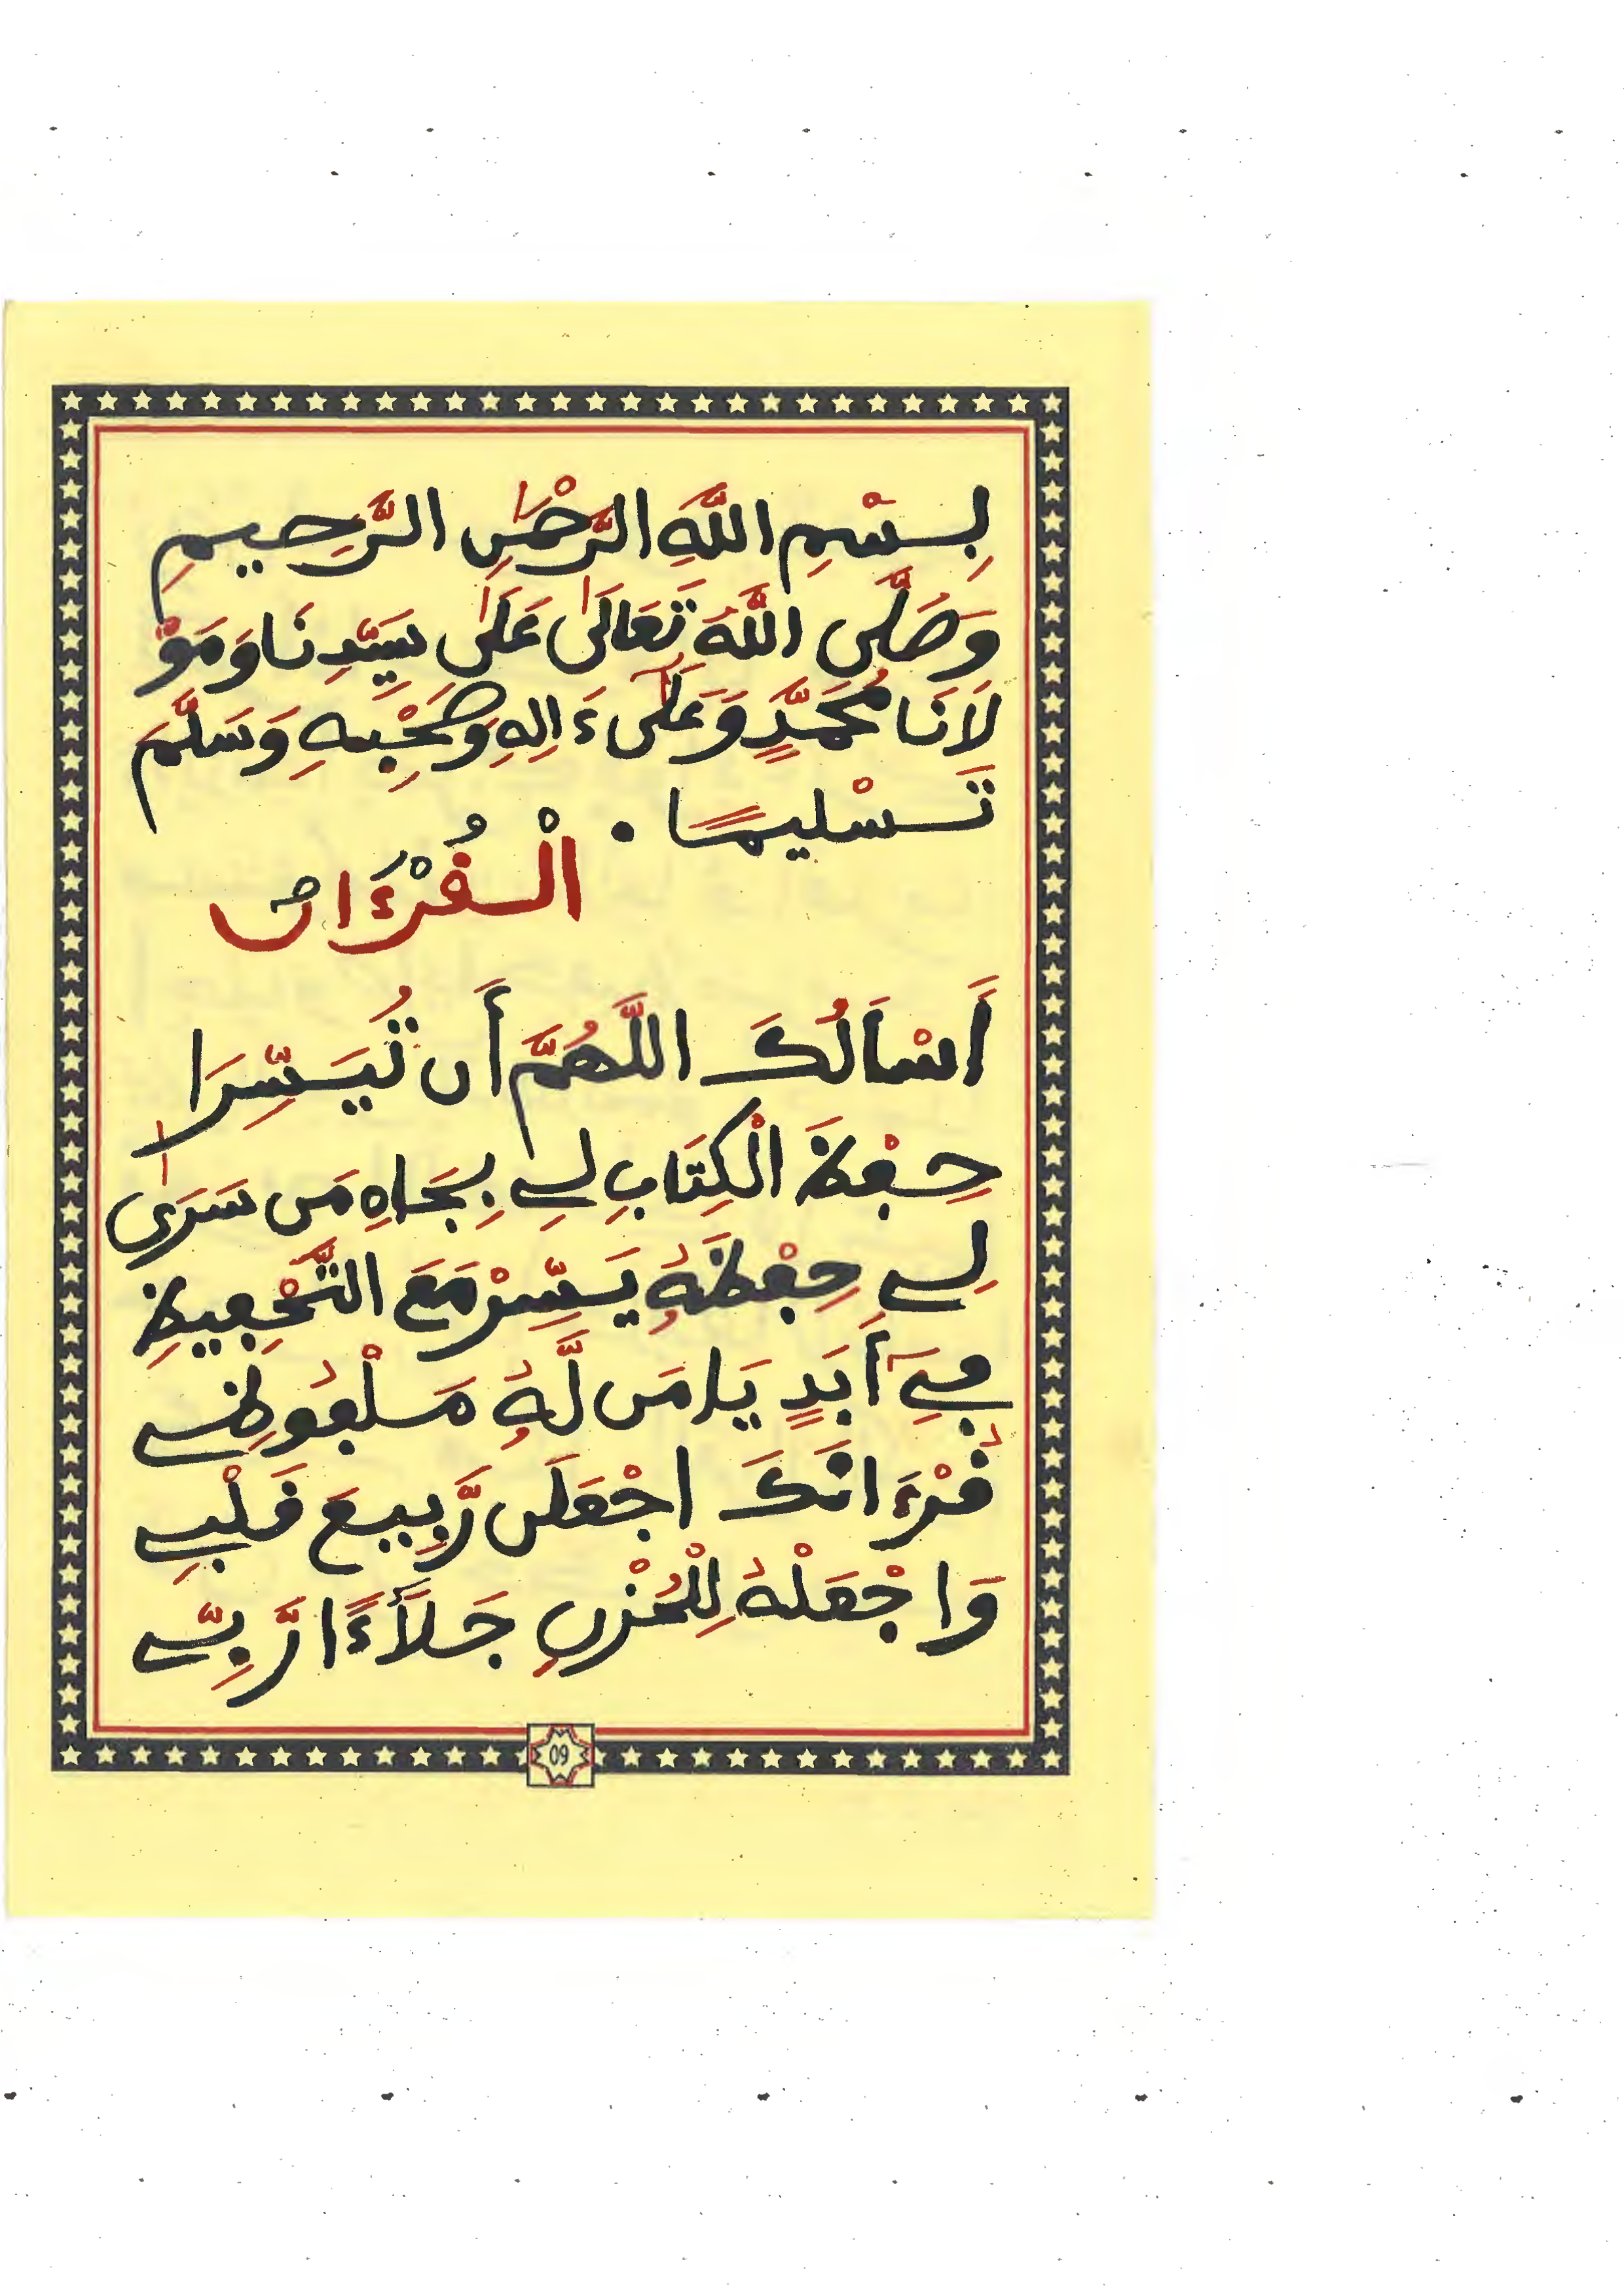 بِسْمِ اللَّهِ الرَّحْمَٰنِ الرَّحِيمِ
وَصَلَّى اللَّهُ تَعَالَىٰ عَلَىٰ سَيِّدِنَا وَمَوْ
لَانَا مُحَمَّدٍ وَعَلَىٰٓ ءَالِهِ وَصَحْبِهِ وَسَلَّمَ
تَسْلِيمًا .
الْقُرْءَانُ
أَسْأَلُكَ اللَّهُمَّ أَن تُيَسِّرَا
حِفْظَ الْكِتَابِ لِي بِجَاهِ مَن سَرَىٰ
لِي حِفْظَهُ يَسِّرْ مَعَ التَّحْفِيظِ
فِيٓ أَبَدٍ يَا مَن لَّهُ مَلْفُوظِي
قُرْءَانَكَ اجْعَلَن رَّبِيعَ قَلْبِي
وَاجْعَلْهُ لِلْحُزْنِ جَلَاءً ارَّبِّي
09